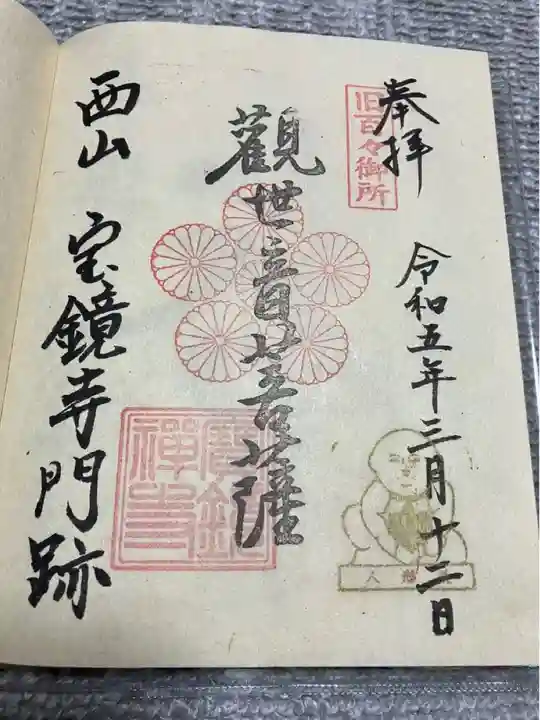 奉拝
旧百々御所
令和五年三月十二日
觀世音菩薩
西山 宝鏡寺門跡